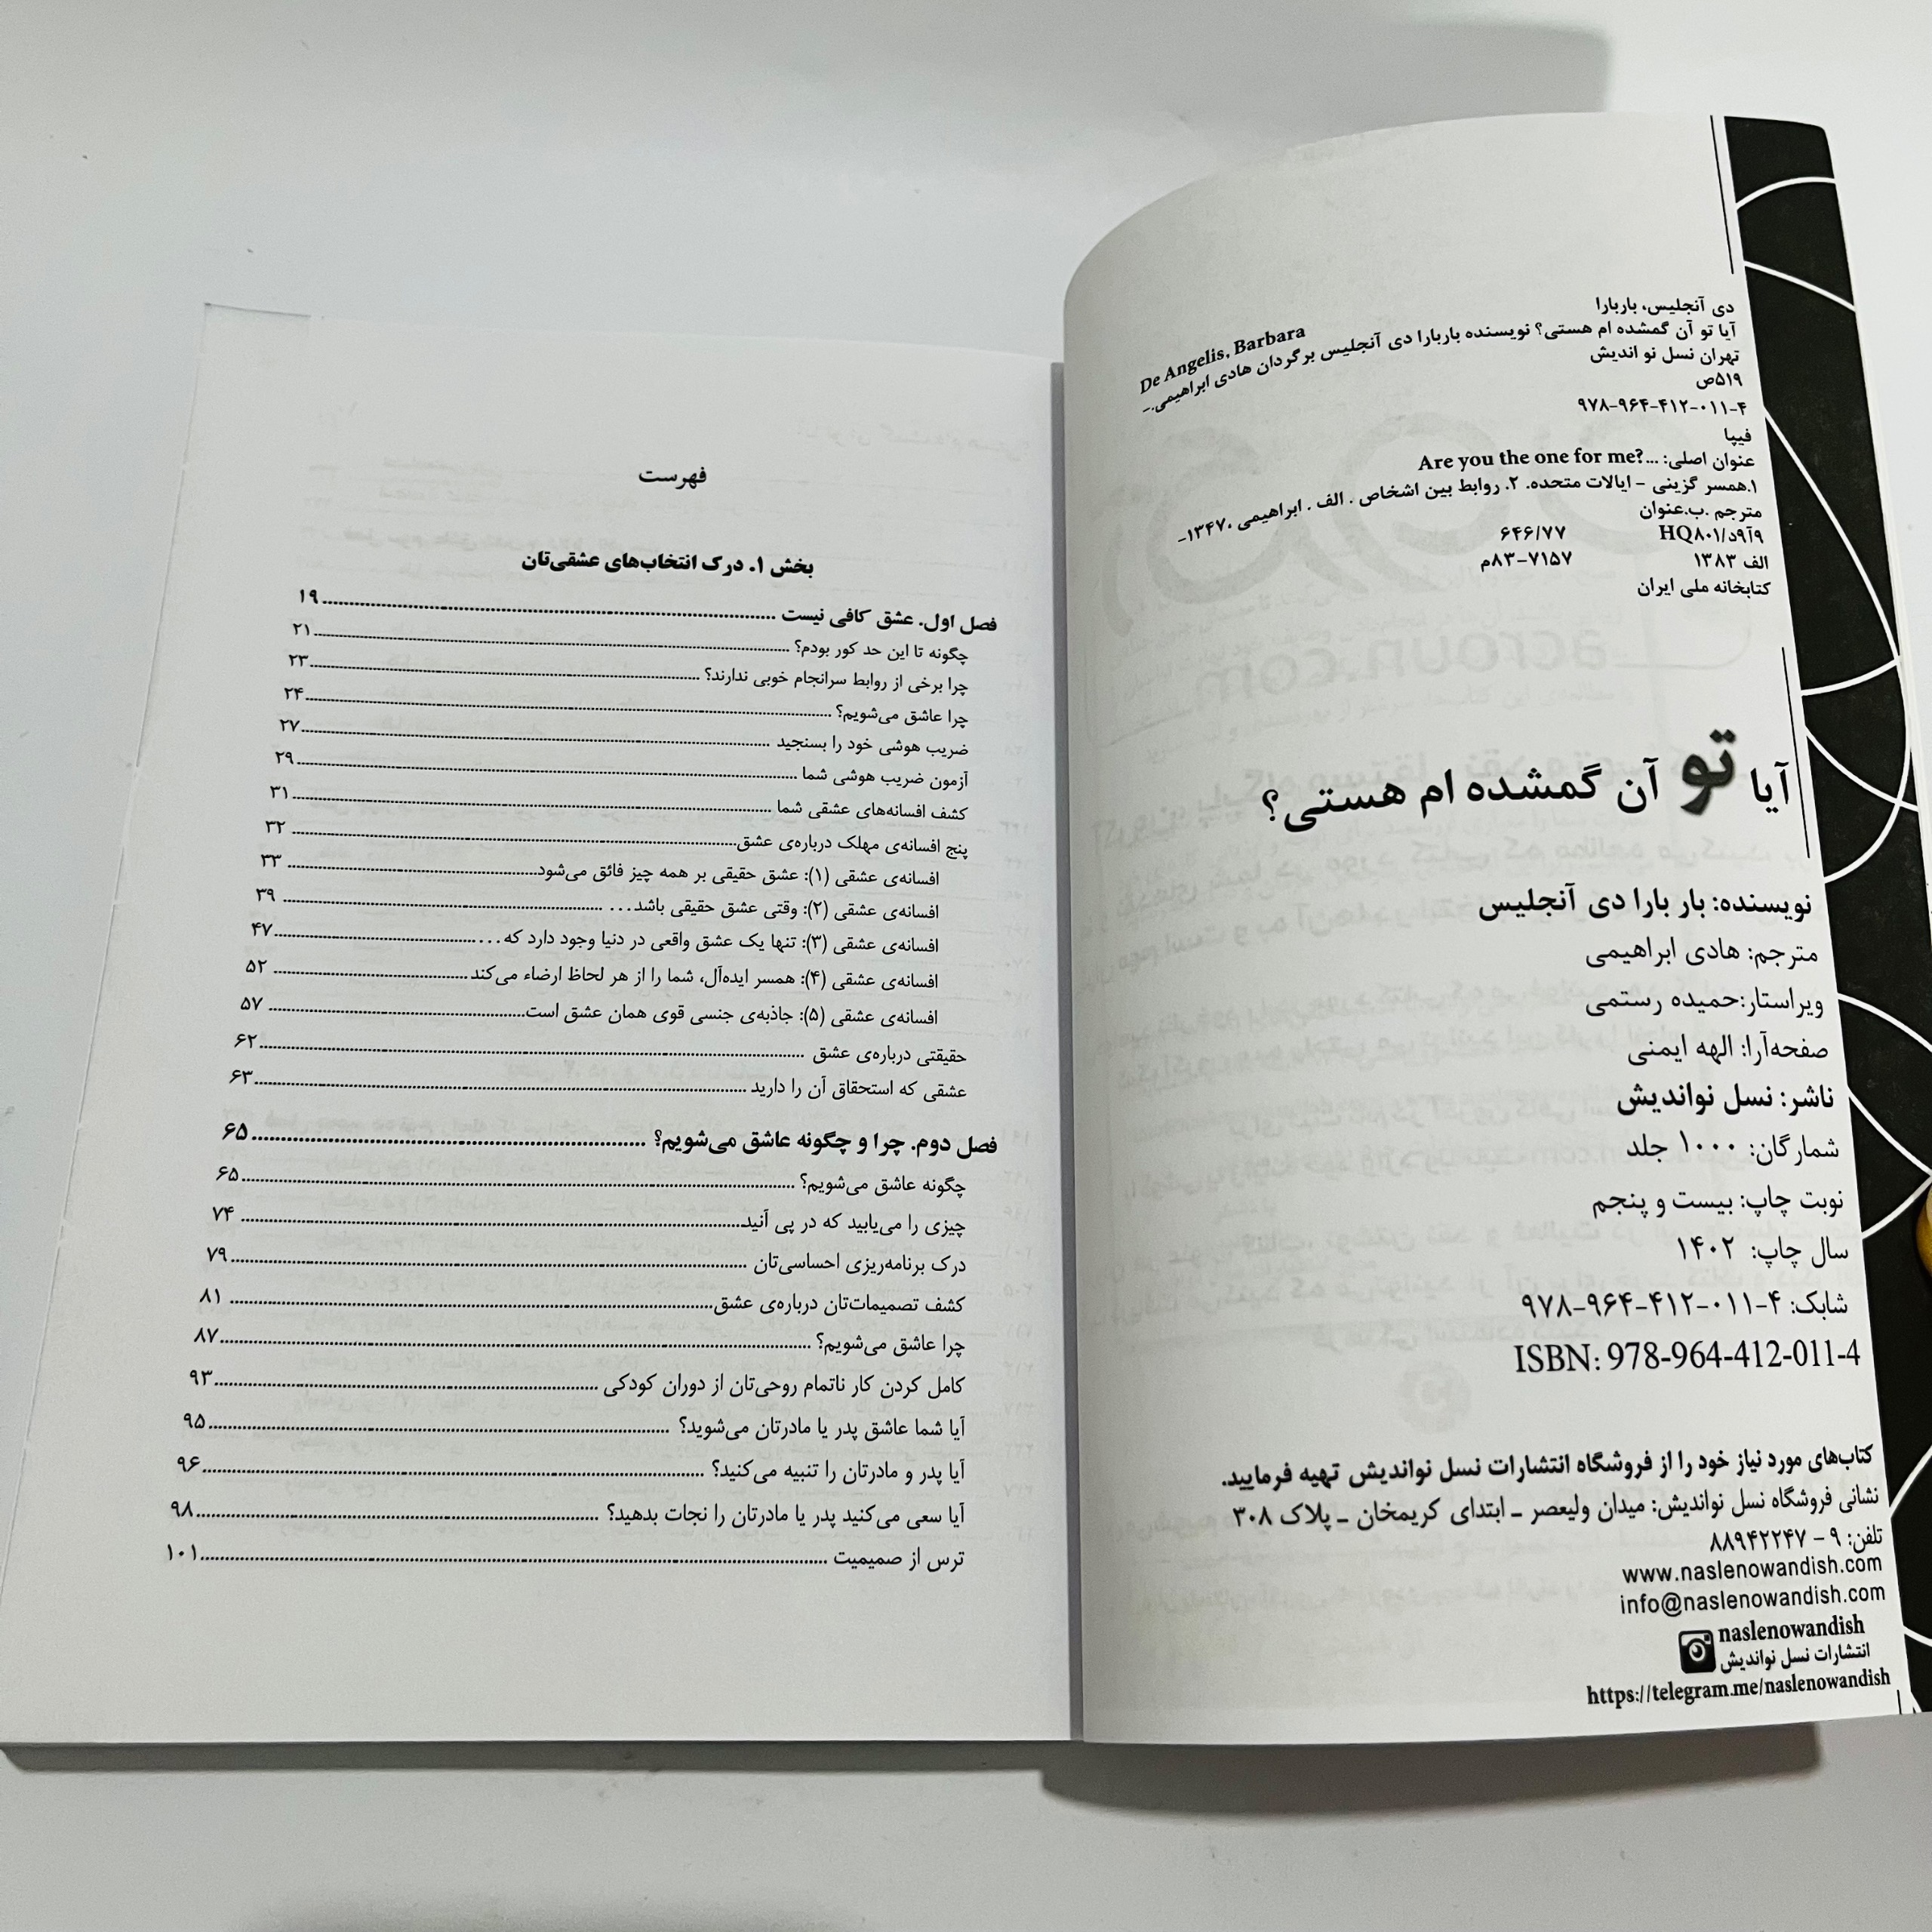 دی آنجلیس، باربارا
De Angelis, Barbara
آیا تو آن گمشده ام هستی؟ نویسنده باربارا دی آنجلیس برگردان هادی ابراهیمی.-
تهران نسل نو اندیش
۵۱۹ص
۹۷۸-۹۶۴-۴۱۲-۰۱۱-۴
فیپا
عنوان اصلی: ...Are you the one for me?
۱.همسر گزینی - ایالات متحده. ۲. روابط بین اشخاص . الف . ابراهیمی ،۱۳۴۷-
مترجم .ب.عنوان
۹آ۹د/HQ۸۰۱ ۶۴۶/۷۷
الف ۱۳۸۳ ۷۱۵۷-۸۳م
کتابخانه ملی ایران
آیا تو آن گمشده ام هستی؟
نویسنده: بار بارا دی آنجلیس
مترجم: هادی ابراهیمی
ویراستار:حمیده رستمی
صفحه‌آرا: الهه ایمنی
ناشر: نسل نواندیش
شمارگان: ۱۰۰۰ جلد
نوبت چاپ: بیست و پنجم
سال چاپ: ۱۴۰۲
شابک: ۴-۰۱۱-۴۱۲-۹۶۴-۹۷۸
ISBN: 978-964-412-011-4
کتاب‌های مورد نیاز خود را از فروشگاه انتشارات نسل نواندیش تهیه فرمایید.
نشانی فروشگاه نسل نواندیش: میدان ولیعصر ـ ابتدای کریمخان ـ پلاک ۳۰۸
تلفن: ۹ - ۸۸۹۴۲۲۴۷
www.naslenowandish.com
info@naslenowandish.com
naslenowandish
انتشارات نسل نواندیش
https://telegram.me/naslenowandish
فهرست
بخش ۱. درک انتخاب‌های عشقی‌تان
فصل اول. عشق کافی نیست ........ ۱۹
چگونه تا این حد کور بودم؟ ........ ۲۱
چرا برخی از روابط سرانجام خوبی ندارند؟ ........ ۲۳
چرا عاشق می‌شویم؟ ........ ۲۴
ضریب هوشی خود را بسنجید ........ ۲۷
آزمون ضریب هوشی شما ........ ۲۹
کشف افسانه‌های عشقی شما ........ ۳۱
پنج افسانه‌ی مهلک درباره‌ی عشق ........ ۳۲
افسانه‌ی عشقی (۱): عشق حقیقی بر همه چیز فائق می‌شود ........ ۳۳
افسانه‌ی عشقی (۲): وقتی عشق حقیقی باشد... ........ ۳۹
افسانه‌ی عشقی (۳): تنها یک عشق واقعی در دنیا وجود دارد که... ........ ۴۷
افسانه‌ی عشقی (۴): همسر ایده‌آل، شما را از هر لحاظ ارضاء می‌کند ........ ۵۲
افسانه‌ی عشقی (۵): جاذبه‌ی جنسی قوی همان عشق است ........ ۵۷
حقیقتی درباره‌ی عشق ........ ۶۲
عشقی که استحقاق آن را دارید ........ ۶۳
فصل دوم. چرا و چگونه عاشق می‌شویم؟ ........ ۶۵
چگونه عاشق می‌شویم؟ ........ ۶۵
چیزی را می‌یابید که در پی آنید ........ ۷۴
درک برنامه‌ریزی احساسی‌تان ........ ۷۹
کشف تصمیمات‌تان درباره‌ی عشق ........ ۸۱
چرا عاشق می‌شویم؟ ........ ۸۷
کامل کردن کار ناتمام روحی‌تان از دوران کودکی ........ ۹۳
آیا شما عاشق پدر یا مادرتان می‌شوید؟ ........ ۹۵
آیا پدر و مادرتان را تنبیه می‌کنید؟ ........ ۹۶
آیا سعی می‌کنید پدر یا مادرتان را نجات بدهید؟ ........ ۹۸
ترس از صمیمیت ........ ۱۰۱